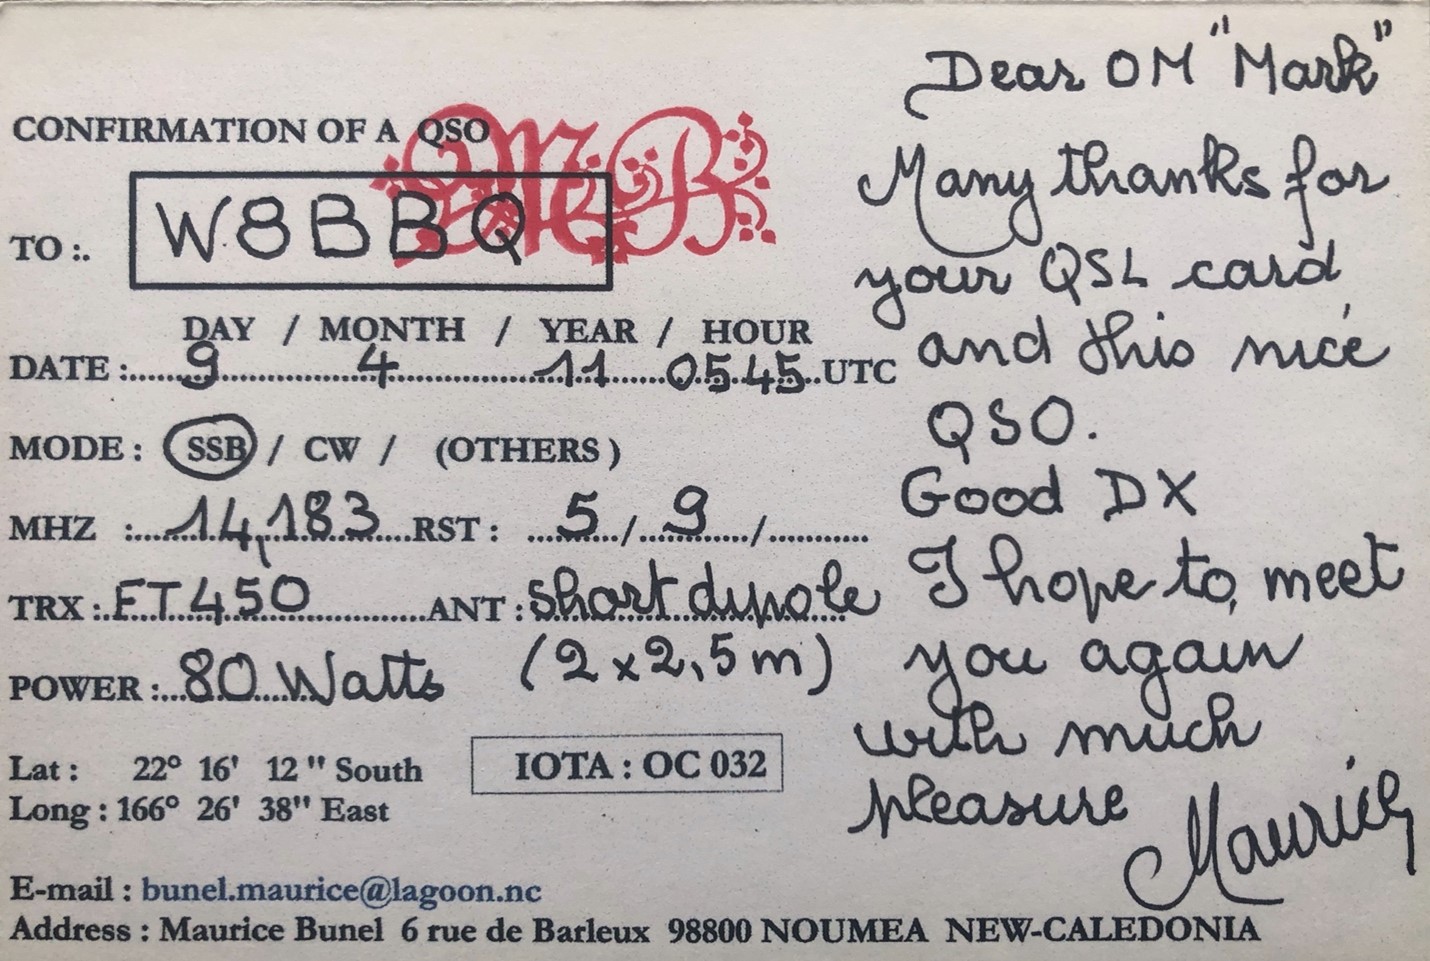 CONFIRMATION OF A QSO
MB
TO :. W8BBQ
DAY / MONTH / YEAR / HOUR
DATE :. 9 4 11 0545 UTC
MODE : SSB / CW / (OTHERS )
MHZ : 14,183 RST : 5 / 9 /
TRX : FT450 ANT : short dipole
(2 x 2,5 m)
POWER : 80 Watts
Lat : 22° 16' 12 " South
Long : 166° 26' 38" East
IOTA : OC 032
E-mail : bunel.maurice@lagoon.nc
Address : Maurice Bunel 6 rue de Barleux 98800 NOUMEA NEW-CALEDONIA
Dear OM "Mark"
Many thanks for
your QSL card
and this nice
QSO.
Good DX
I hope to meet
you again
with much
pleasure
Maurice